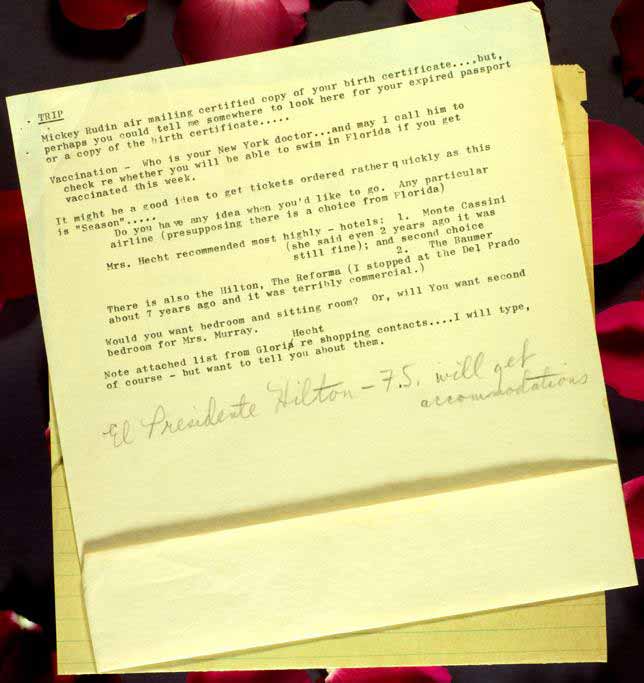 TRIP
Mickey Rudin air mailing certified copy of your birth certificate....but,
perhaps you could tell me somewhere to look here for your expired passport
or a copy of the birth certificate.....
Vaccination - Who is your New York doctor...and may I call him to
check re whether you will be able to swim in Florida if you get
vaccinated this week.
It might be a good idea to get tickets ordered rather quickly as this
is "Season".....
Do you have any idea when you'd like to go. Any particular
airline (presupposing there is a choice from Florida)
Mrs. Hecht recommended most highly - hotels: 1. Monte Cassini
(she said even 2 years ago it was
still fine); and second choice
2. The Baumer
There is also the Hilton, The Reforma (I stopped at the Del Prado
about 7 years ago and it was terribly commercial.)
Would you want bedroom and sitting room? Or, will You want second
bedroom for Mrs. Murray.
Hecht
Note attached list from Gloria re shopping contacts....I will type,
of course - but want to tell you about them.
El Presidente Hilton - F.S. will get
accommodations